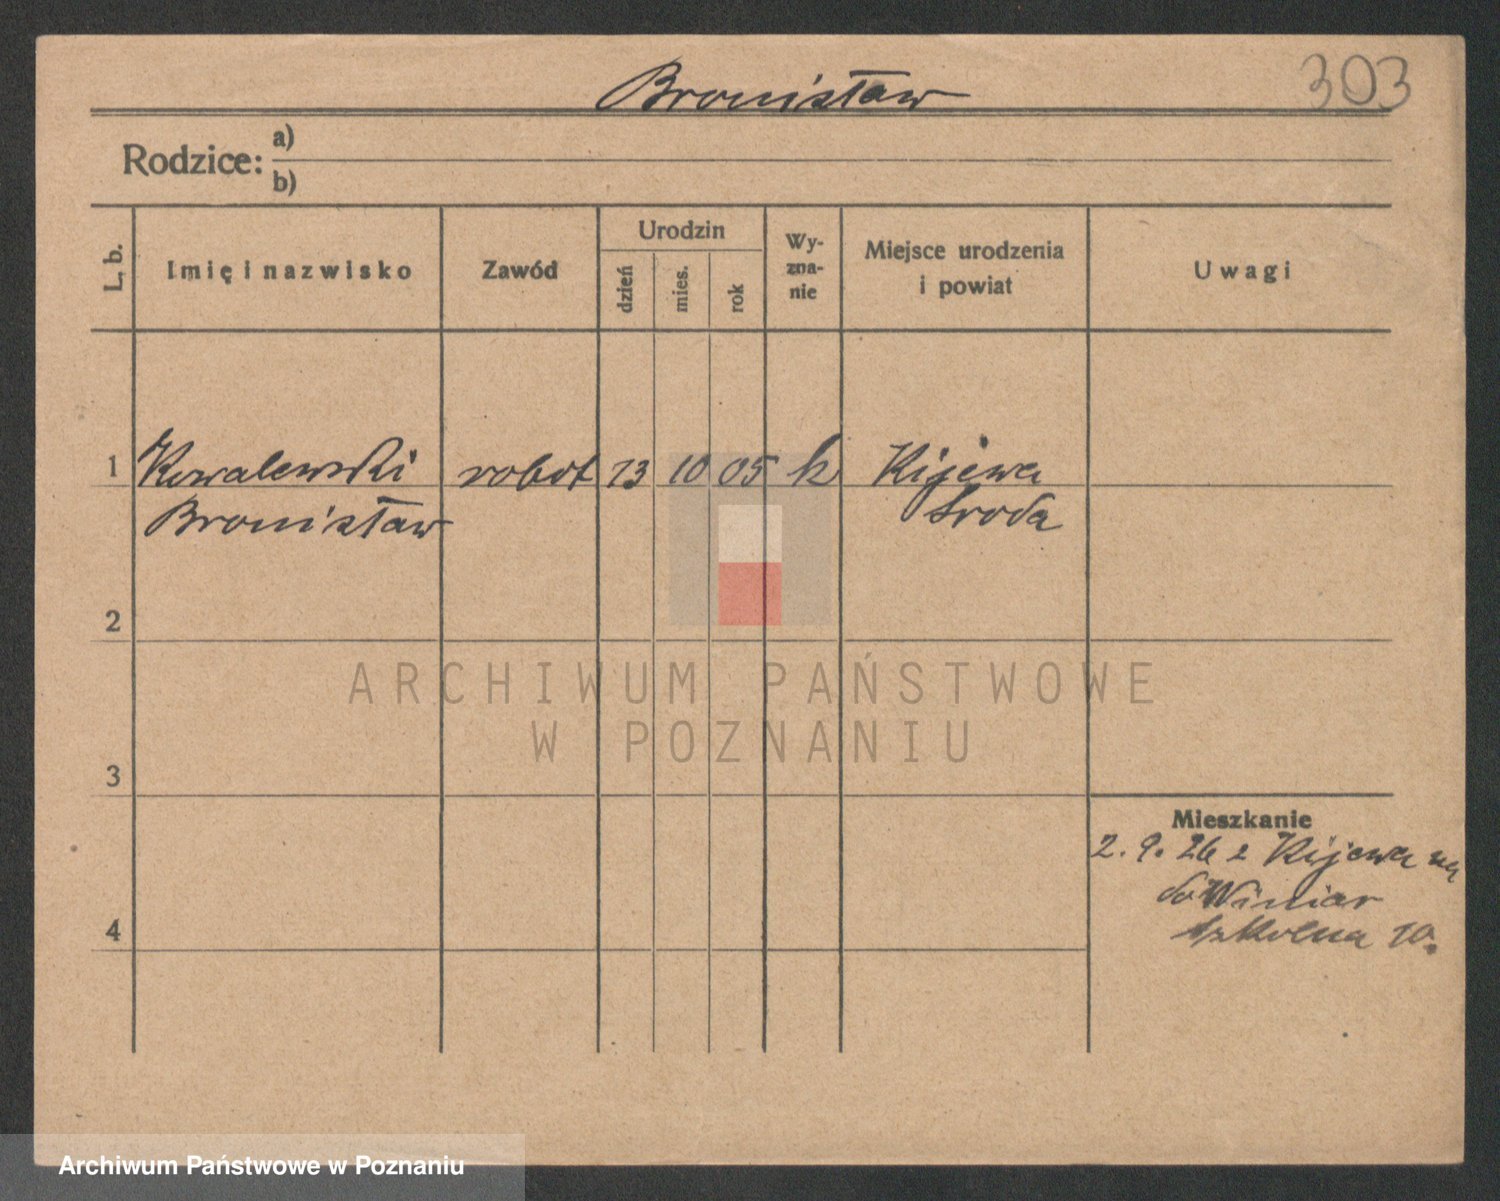 Bronisław
303
Rodzice: a)
b)
L. b.
Imię i nazwisko
Zawód
Urodzin
dzień
mies.
rok
Wy-
zna-
nie
Miejsce urodzenia
i powiat
Uwagi
1 Kowalewski robot 13 10 05 k Kijewa
Bronisław Sroda
2
3
4
Mieszkanie
2. 9. 26 z Kijewa
do Winiar
Szkolna 10.
ARCHIWUM PAŃSTWOWE
W POZNANIU
Archiwum Państwowe w Poznaniu